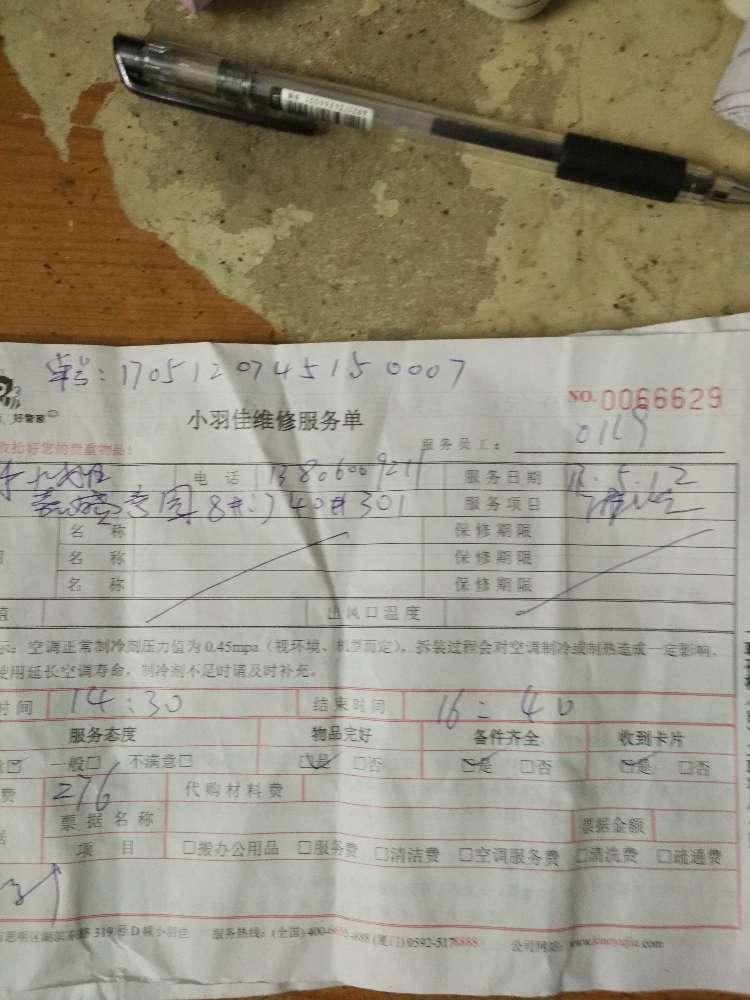 单号:170512074515 0007
NO. 0066629
好管家
小羽佳维修服务单
收拾好您的贵重物品!
服务员工: 0119
电 话 服务日期 17.5.12
8#:740#301 服务项目
名 称 保修期限
名 称 保修期限
名 称 保修期限
值 出风口温度
示: 空调正常制冷剂压力值为 0.45mpa(视环境、机型而定), 拆装过程会对空调制冷或制热造成一定影响,
使用延长空调寿命, 制冷剂不足时请及时补充。
时间 14:30 结束时间 16:40
服务态度 物品完好 备件齐全 收到卡片
☑ 一般□ 不满意□ ☑是 □否 ☑是 □否 ☑是 □否
费 276 代购材料费
票据名称 票据金额
据 项 目 □搬办公用品 □服务费 □清洁费 □空调服务费 □清洗费 □疏通费
思明区 319 号 D 栋小羽佳 服务热线: (全国)400- -888 (厦门)0592-5178888 公司网站: www.xiaoyujia.com